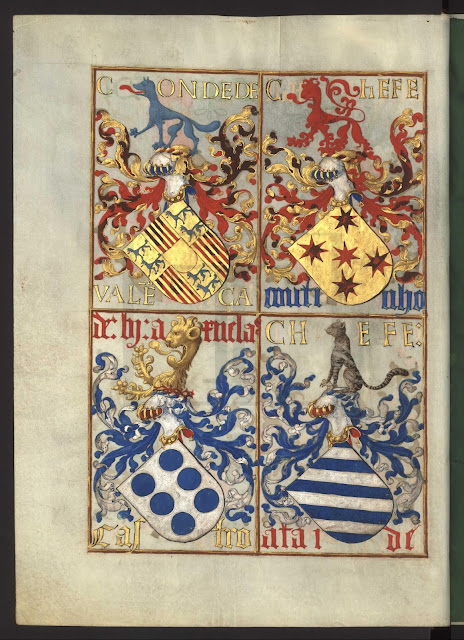 C ONDEDE
VALẼ ÇA
C hEFE
couti nho
de: bj: a rruelas
Cas tro
CH EFE:
atai de